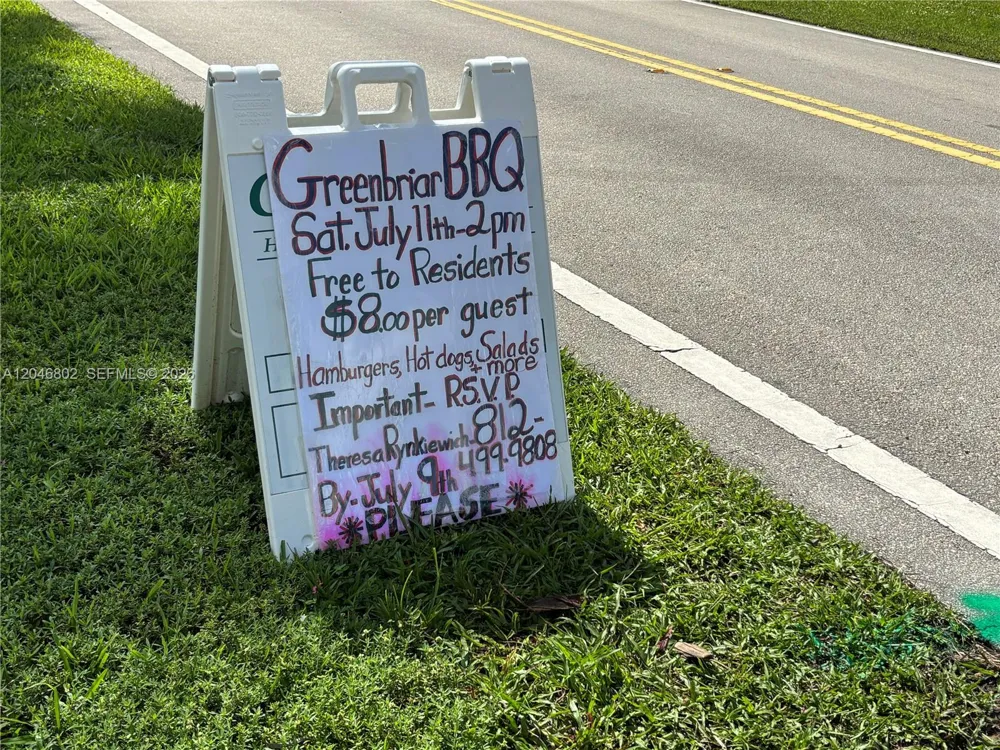 Greenbriar BBQ
Sat. July 11th - 2pm
Free to Residents
$8.00 per guest
Hamburgers, Hot dogs, Salads
+ more
Important - R.S.V.P.
Theresa Rynkiewich - 812-
499-9808
By - July 9th
PLEASE
A12046802 SEFMLS© 202